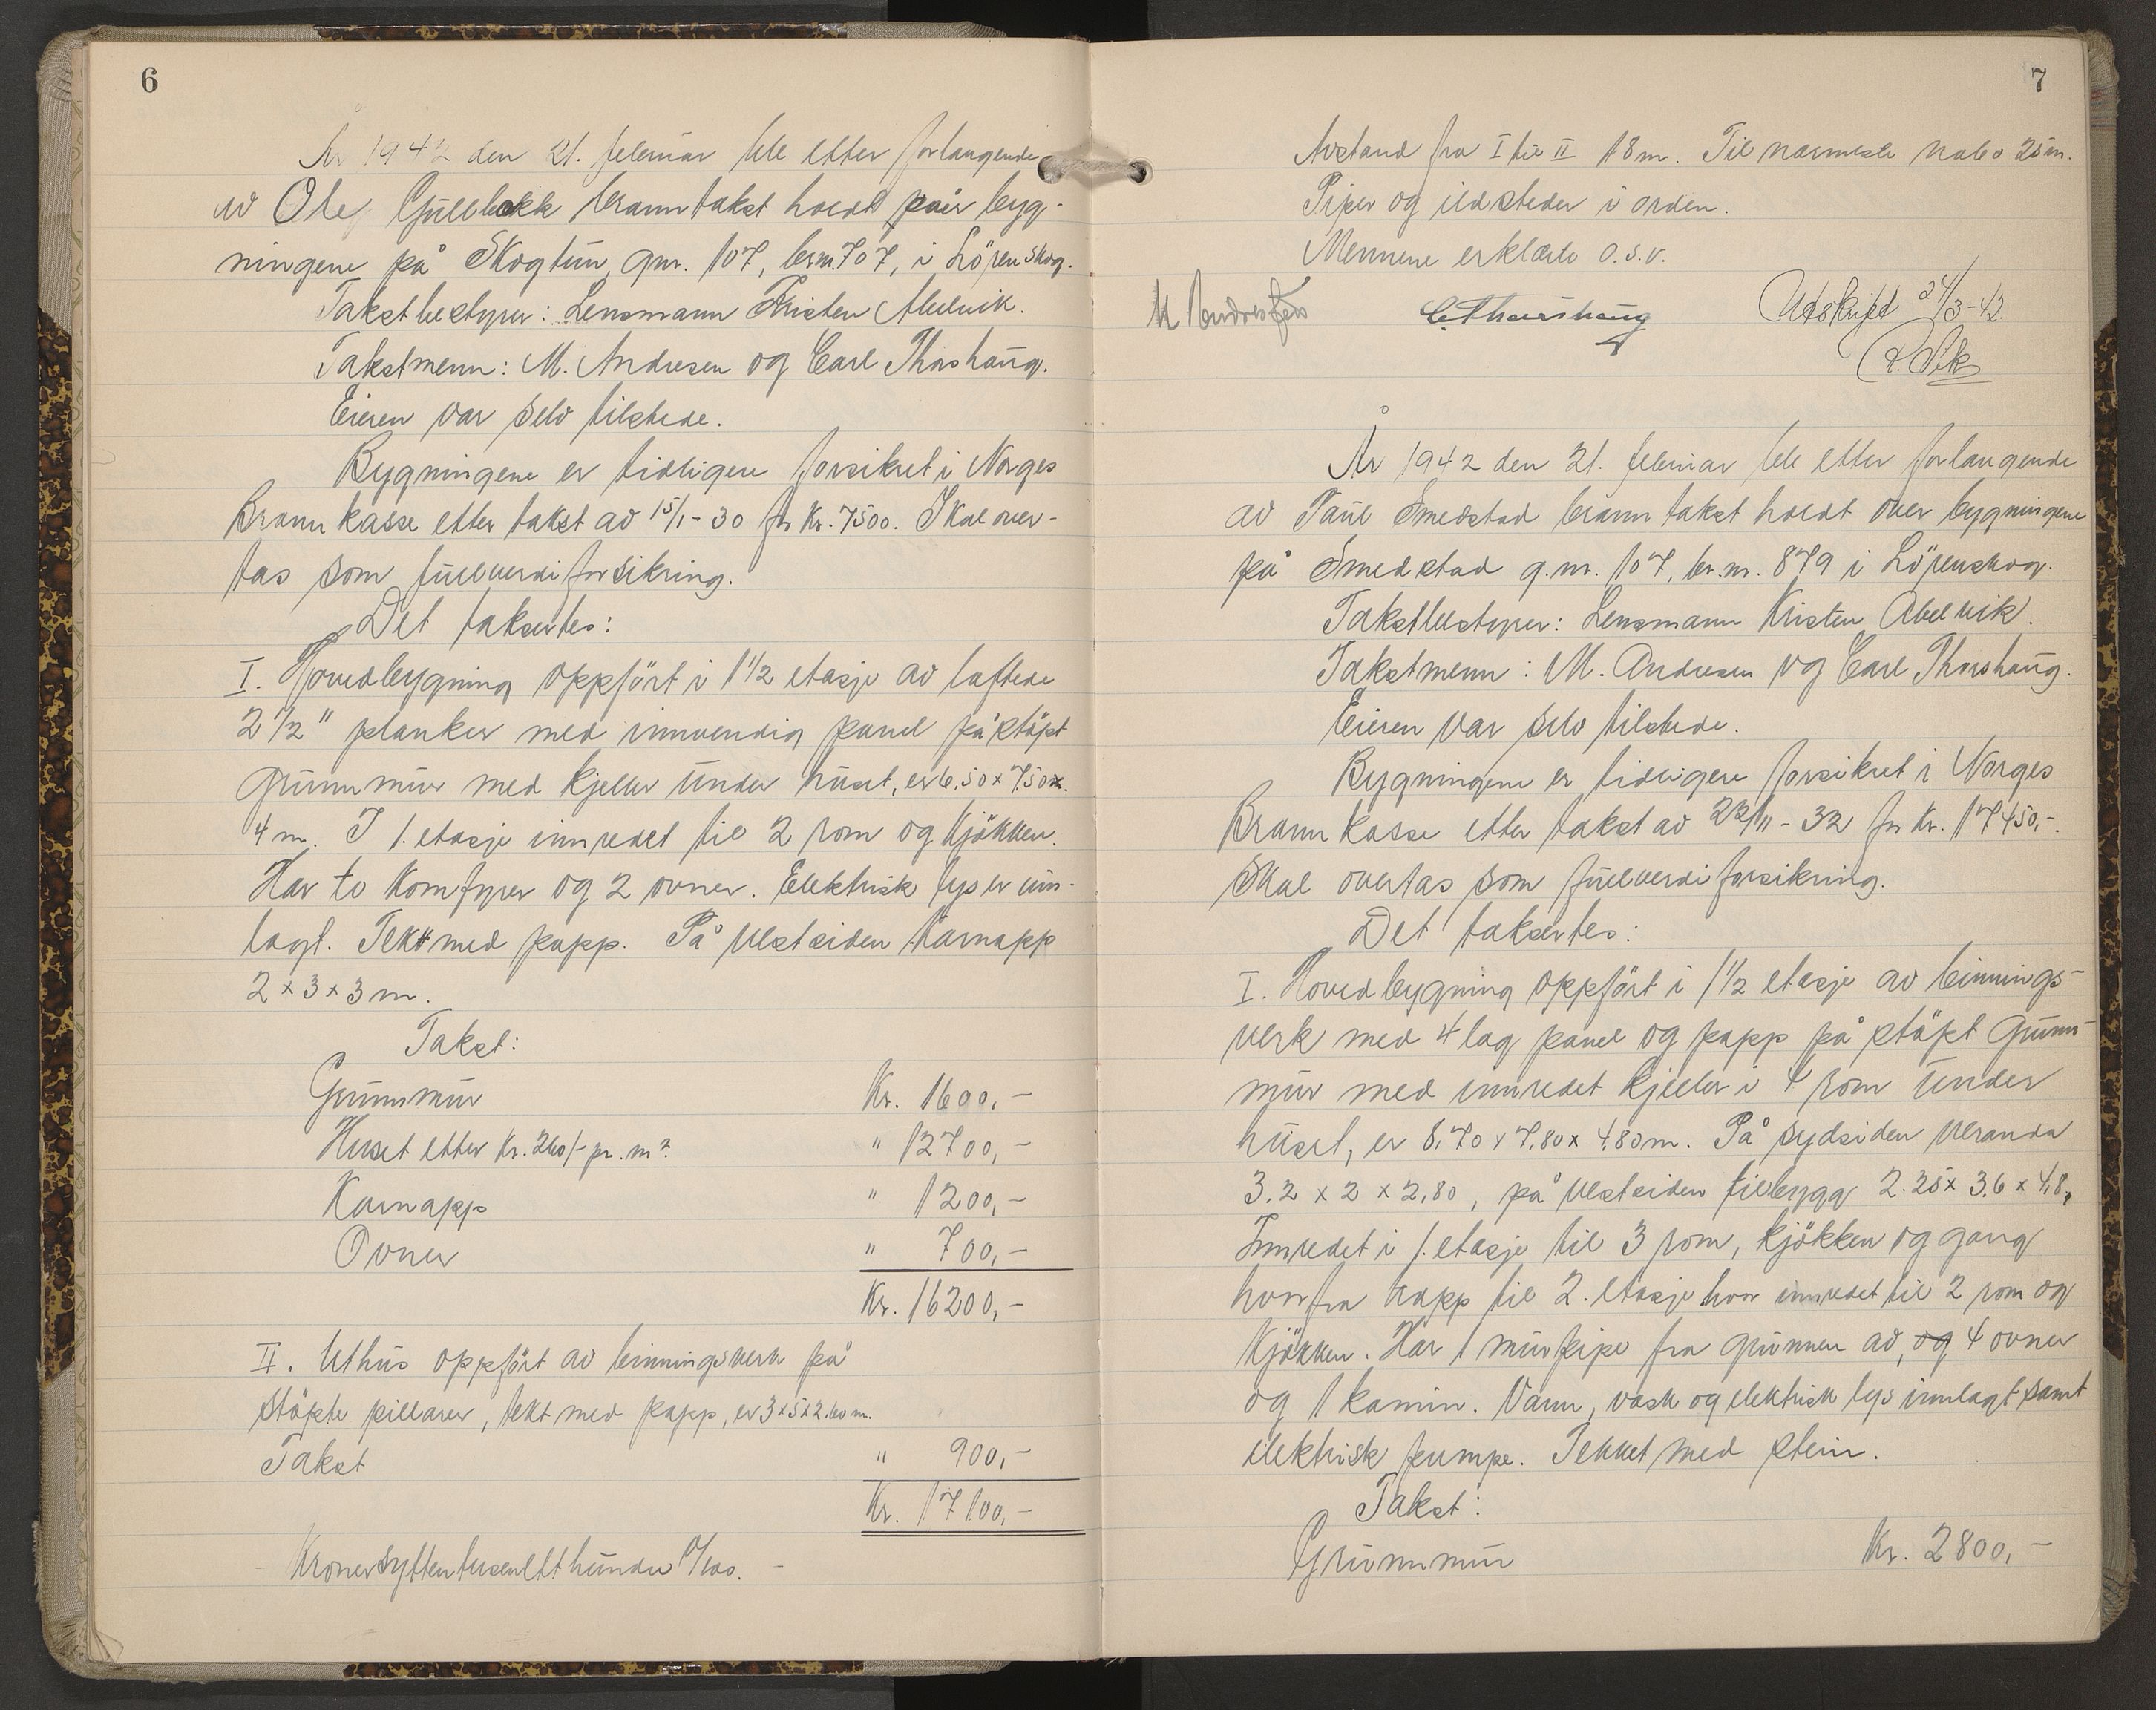 6
År 1942 den 21. februar ble etter forlangende
av Ole Gullbekk branntakst holdt på byg-
ningene på Skogtun, gnr. 107, brnr. 707, i Lörenskog.
Takstbestyrer: Lensmann Kristen Abelvik.
Takstmenn: M. Andresen og Carl Thorshaug.
Eieren var selv tilstede.
Bygningene er tidligere forsikret i Norges
Brannkasse etter takst av 15/1-30 for kr. 7500. Skal over-
tas som fullverdiforsikring.
Det takertes:
I. Hovedbygning oppfört i 1 1/2 etasje av laftede
2 1/2" planker med innvendig panel på stöpt
grunnmur med kjeller under huset, er 6,50 x 7,50 x
4 m. I 1. etasje innredet til 2 rom og kjökken.
Har to komfyrer og 2 ovner. Elektrisk lys er inn-
lagt. Tekt med papp. På vestsiden karnapp
2 x 3 x 3 m.
Takst:
Grunnmur Kr. 1600,-
Huset etter kr. 260/- pr. m² " 12700,-
Karnapp " 1200,-
Ovner " 700,-
Kr. 16200,-
II. Uthus oppfört av binningsverk på
stöpte pillarer, tekt med papp, er 3 x 5 x 2.60 m.
Takst " 900,-
Kr. 17100,-
- Kroner sytten tusen ett hundre 0/100. -
7
Avstand fra I til II 18 m. Til nærmeste nabo 25 m.
Piper og ildsteder i orden.
Mennene erklærte o.s.v.
M Andresen C. Thorshaug Utskrift 24/3-42
R. Vik
År 1942 den 21. februar ble etter forlangende
av Paul Smedstad branntakst holdt over bygningene
på Smedstad g.nr. 107, br.nr. 879 i Lörenskog.
Takstbestyrer: Lensmann Kristen Abelvik.
Takstmenn: M. Andresen og Carl Thorshaug.
Eieren var selv tilstede.
Bygningene er tidligere forsikret i Norges
Brannkasse etter takst av 22/11-32 for kr. 17450,-.
Skal overtas som fullverdiforsikring.
Det takertes:
I. Hovedbygning oppfört i 1 1/2 etasje av binnings-
verk med 4 lag panel og papp på stöpt grunn-
mur med innredet kjeller i 4 rom under
huset, er 8,70 x 7,80 x 4,80 m. På sydsiden veranda
3.2 x 2 x 2,80, på vestsiden tilbygg 2.25 x 3.6 x 4,8.
Innredet i 1. etasje til 3 rom, kjökken og gang
hvorfra trapp til 2. etasje hvor innredet til 2 rom og
kjökken. Har 1 murpipe fra grunnen av, og 4 ovner
og 1 kamin. Vann, vask og elektrisk lys innlagt samt
elektrisk pumpe. Tekket med stein.
Takst:
Grunnmur Kr. 2800,-